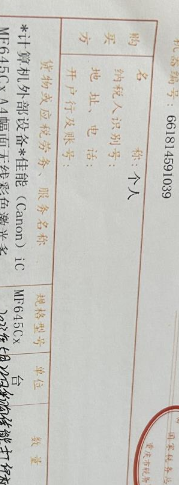 机器编号：661814591039
购买方
名　　称：个人
纳税人识别号：
地　址、电　话：
开户行及账号：
货物或应税劳务、服务名称　规格型号　单位　数量
*计算机外部设备*佳能（Canon）iC　MF645Cx　台
MF645Cx A4幅面无线彩色激光多
国家税务总
重庆市税务